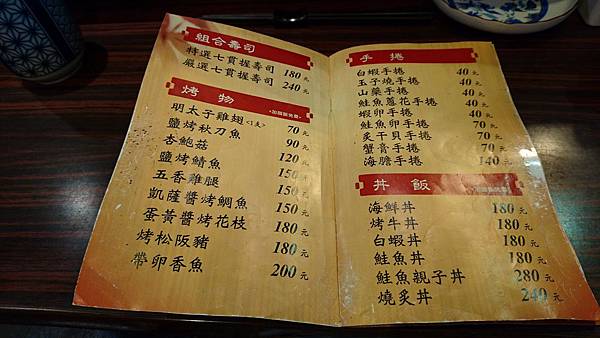 組合壽司
特選七貫握壽司 180元
嚴選七貫握壽司 240元
烤物
明太子雞翅<1支> 70元
鹽烤秋刀魚 90元
杏鮑菇 120元
鹽烤鯖魚 150元
五香雞腿 150元
凱薩醬烤鯛魚 150元
蛋黃醬烤花枝 180元
烤松阪豬 180元
帶卵香魚 200元
手捲
白蝦手捲 40元
玉子燒手捲 40元
山藥手捲 40元
鮭魚蔥花手捲 40元
蝦卵手捲 40元
鮭魚卵手捲 70元
炙干貝手捲 70元
蟹膏手捲 70元
海膽手捲 140元
丼飯
海鮮丼 180元
烤牛丼 180元
白蝦丼 180元
鮭魚丼 180元
鮭魚親子丼 280元
燒炙丼 240元